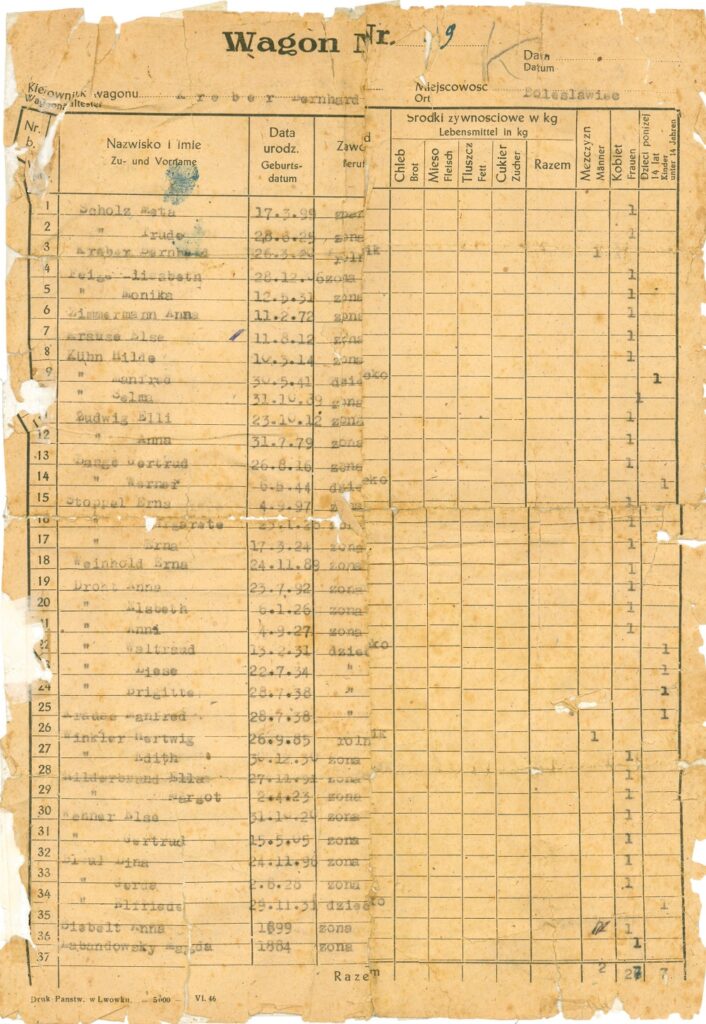 Wagon Nr. 19
Data
Datum
Kierownik wagonu Kreber Bernhard Miejscowosc Boleslawiec
Wagonältester Ort
Nr. Nazwisko i imie Data urodz. Srodki zywnosciowe w kg Mezczyzn Kobiet Dzieci poniżej 14 lat
Zu- und Vorname Geburts-datum Lebensmittel in kg Männer Frauen Kinder unter 14 Jahren
Chleb Mieso Tluszcz Cukier Razem
Brot Fleisch Fett Zucher
1 Scholz Meta 17.3.99 1
2 " Trude 28.8.25 zona 1
3 Kreber Bernhard 1
4 Elisabeth 28.12.06 zona 1
5 " Monika 12.5.31 zona 1
6 Zimmermann Anna 11.2.72 zona 1
7 Krause Else 11.8.12 zona 1
8 Kühn Hilde 10.5.14 zona 1
9 " Manfred 30.5.41 dziecko 1
" Selma 31.10.89 zona 1
11 Ludwig Elli 23.10.12 zona 1
12 " Anna 31.7.79 zona 1
13 Gertrud zona 1
14 " Werner dziecko 1
15 Stoppel Erna 4.9.97 1
16 " Margarete 1
17 " Erna 17.3.24 zona 1
18 Weinhold Erna 24.11.89 zona 1
19 Anna 23.7.92 zona 1
20 " Elsbeth 6.1.26 zona 1
" Anni 4.9.27 zona 1
" Waltraud 13.2.31 dziecko 1
" Liese 22.7.34 " 1
24 " Brigitte 28.7.38 " 1
25 Krause Manfred 28.7.38 " 1
26 Winkler Hertwig 26.9.85 rolnik 1
27 " Edith 30.12.30 zona 1
28 Hilderbrand Ella 27.11.91 zona 1
29 " Margot 2.4.23 zona 1
30 Else zona 1
31 " Gertrud 15.5.05 zona 1
32 Lina 24.11.96 zona 1
33 " Gerda 2.6.28 zona 1
34 " Elfriede 29.11.31 dziecko 1
35 Anna 1899 zona 1
36 Magda 1884 zona 1
37
Razem 2 27 7
Druk Panstw. w Lwowku. — 5000 — VI. 46